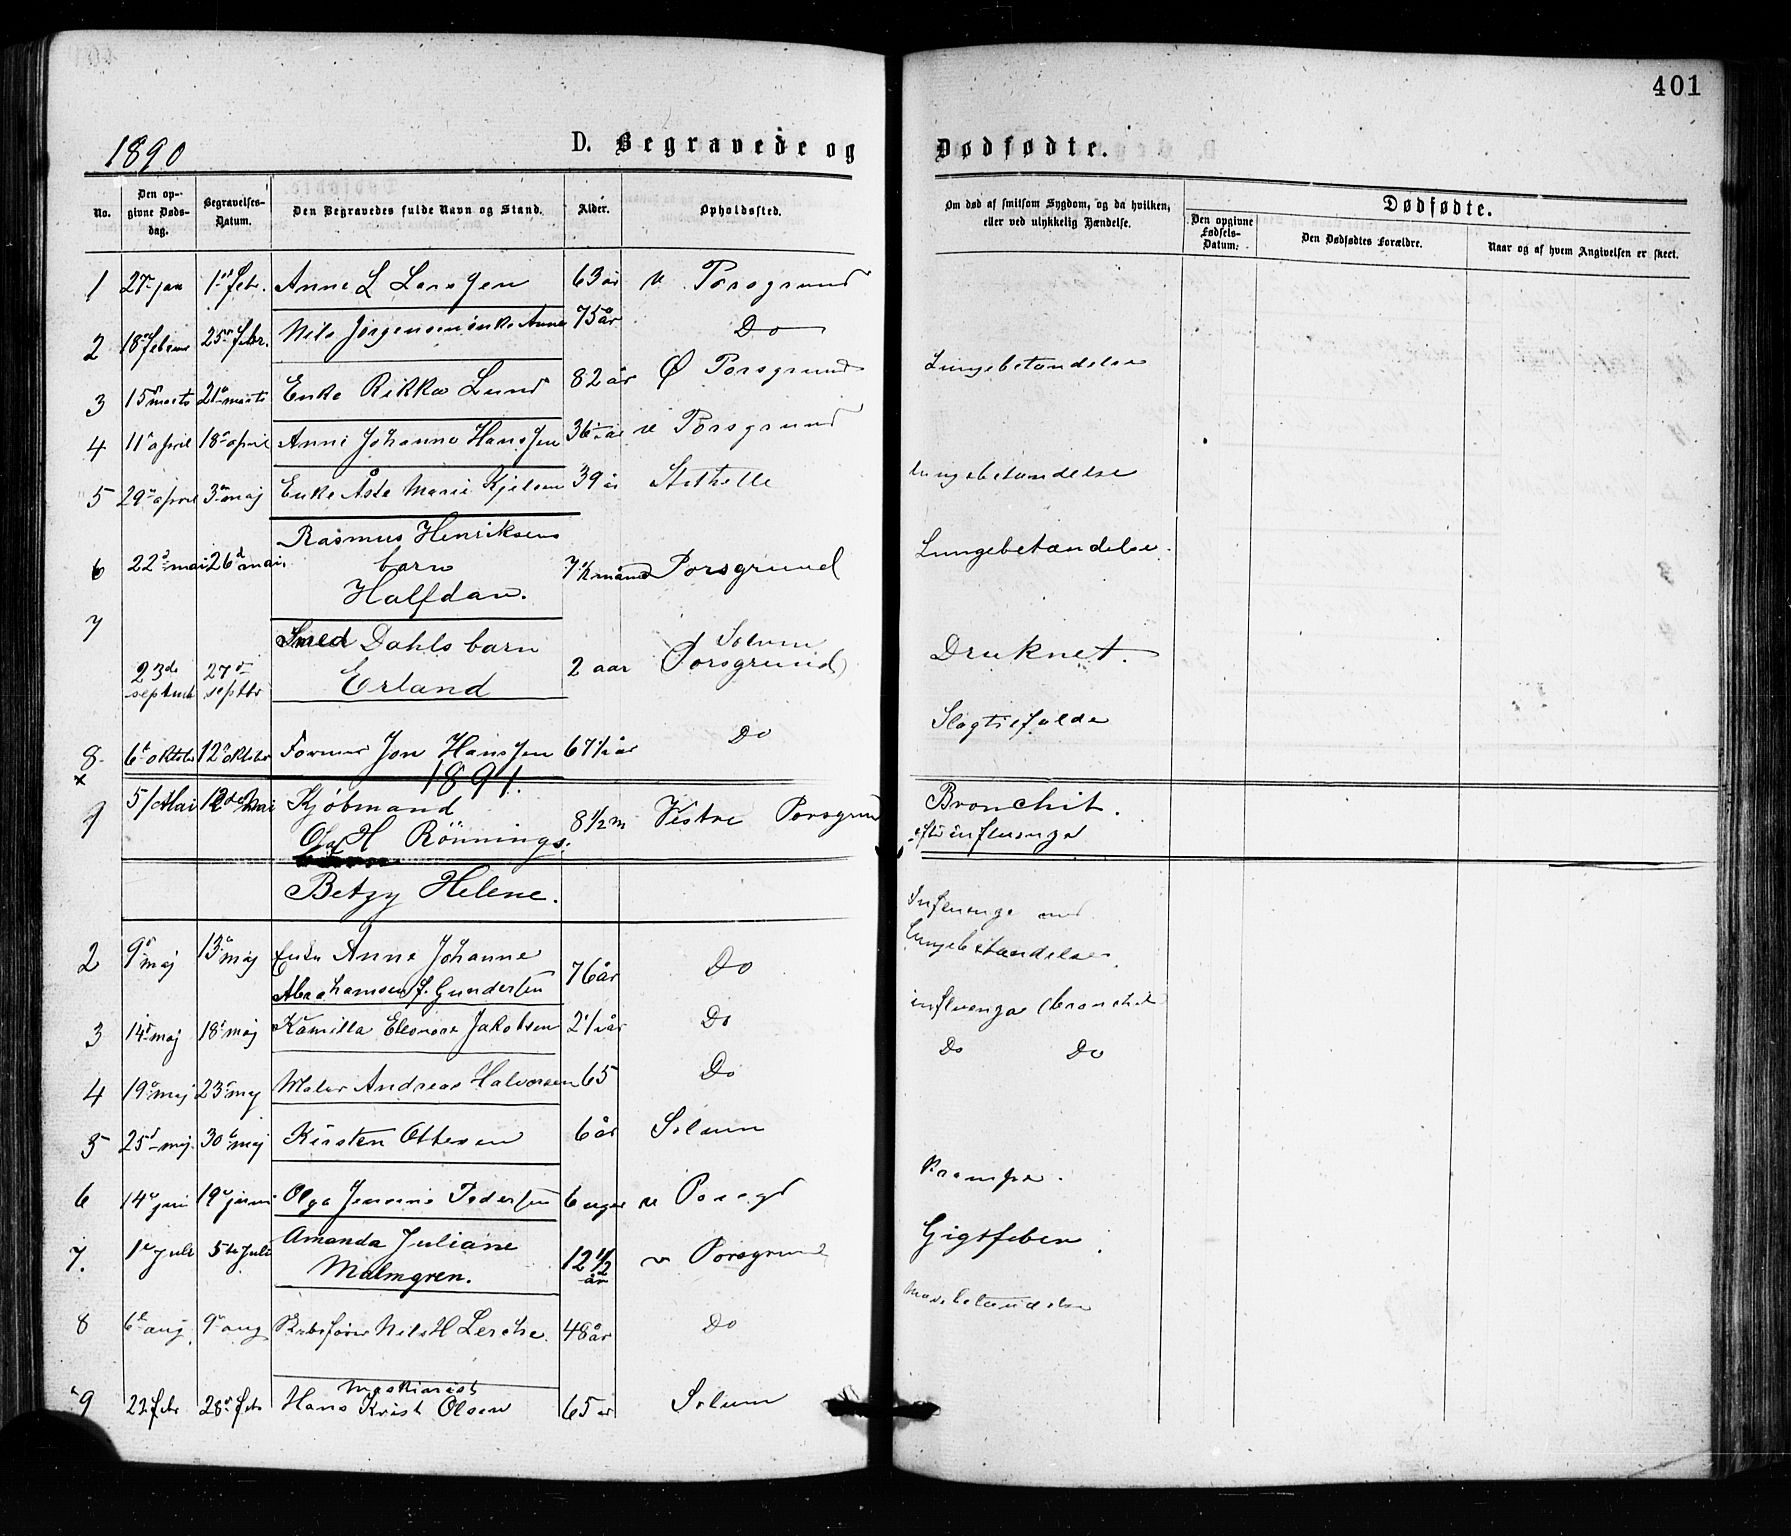 401
1890
D. Begravede og Dødfødte.
No.
Den opgivne Dødsdag.
Begravelses-Datum.
Den Begravedes fulde Navn og Stand.
Alder.
Opholdssted.
Om død af smitsom Sygdom, og da hvilken, eller ved ulykkelig Hændelse.
Dødfødte.
Den opgivne Fødsels-Datum.
Den Dødfødtes Forældre.
Naar og af hvem Angivelsen er skeet.
1 27 jan 1 febr. Anne L Larsen 63 år v Porsgrund
2 18 februar 25 febr. Nils Jørgensens enke Anne 75 år Do
3 15 marts 21 marts Enke Rikka Lund 82 år Ø Porsgrund Lungebetændelse
4 11 april 18 april Anne Johanne Hanssen 36 år v Porsgrund
5 29 april 3 maj Enke Åste Marie Kjelsen 39 år Stathelle Lungebetændelse
6 22d mai 26d mai. Rasmus Henriksens barn Halfdan. 7 1/2 måned Porsgrund Lungebetændelse.
7 23de septemb 27d septbr Smed Dahls barn Erland 2 aar Solum (Porsgrund) Druknet.
8. 6t oktobr 12 oktober Former Jon Hanssen 67 1/2 år Do Slagtilfælde
x
1891.
1 5/ Mai 12de Mai Kjøbmand Olaf H Rönnings. 8 1/2 m Vestre Porsgrund Bronchit. efter influenza
Betzy Helene.
2 9 maj 13 maj Enke Anne Johanne Abrahamsen f. Gundersen 76 år Do Influenza med Lungebetændelse.
3 14 maj 18 maj Kamilla Eleonore Jakobsen 2 1/2 år Do influenza (bronchit
4 19 maj 23 maj Maler Andreas Halvorsen 65 Do Do Do
5 25 maj. 30 maj Kirsten Ottesen 6 år Solum
6 14 juni 19 juni Olga Jensine Pedersen 6 uger v Porsgd Krampe.
7. 1 Juli 5te Juli Amanda Juliane Malmgren. 12 1/2 år v Porsgrund Gigtfeber.
8 6t aug. 9 aug Nils H Lerche. 48 år Do Mavebetændelse
9 22 febr 28 febr maskinist Hans Krist Olsen 65 år Solum